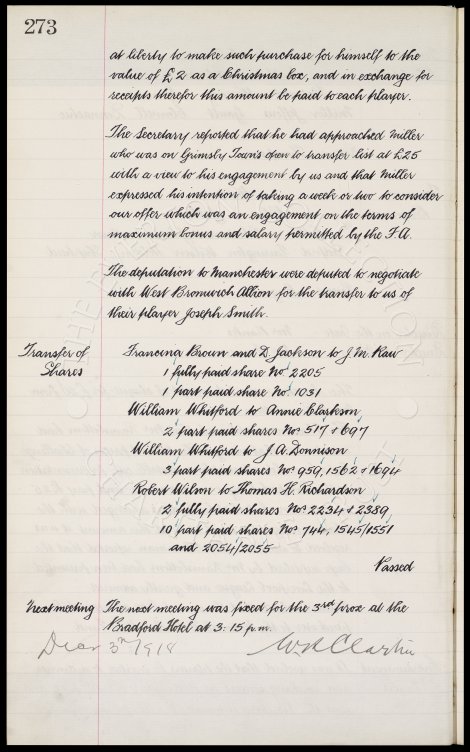 273
at liberty to make such purchase for himself to the
value of £2 as a Christmas box, and in exchange for
receipts therefor this amount be paid to each player.
The Secretary reported that he had approached Miller
who was on Grimsby Town's open to transfer list at £25
with a view to his engagement by us and that Miller
expressed his intention of taking a week or two to consider
our offer which was an engagement on the terms of
maximum bonus and salary permitted by the F.A.
The deputation to Manchester were deputed to negotiate
with West Bromwich Albion for the transfer to us of
their player Joseph Smith.
Transfer of Shares
Francina Brown and D. Jackson to J.M. Raw
1 fully paid share No. 2205
1 part paid share No. 1031
William Whitford to Annie Clarkson
2 part paid shares Nos. 517 & 697
William Whitford to J.A. Donnison
3 part paid shares Nos. 959, 1562 & 1694
Robert Wilson to Thomas H. Richardson
2 fully paid shares Nos. 2234 & 2389
10 part paid shares Nos. 744, 1545/1551
and 2054/2055
Passed
Next meeting The next meeting was fixed for the 3rd prox at the
Bradford Hotel at 3.15 p.m.
3rd/1918